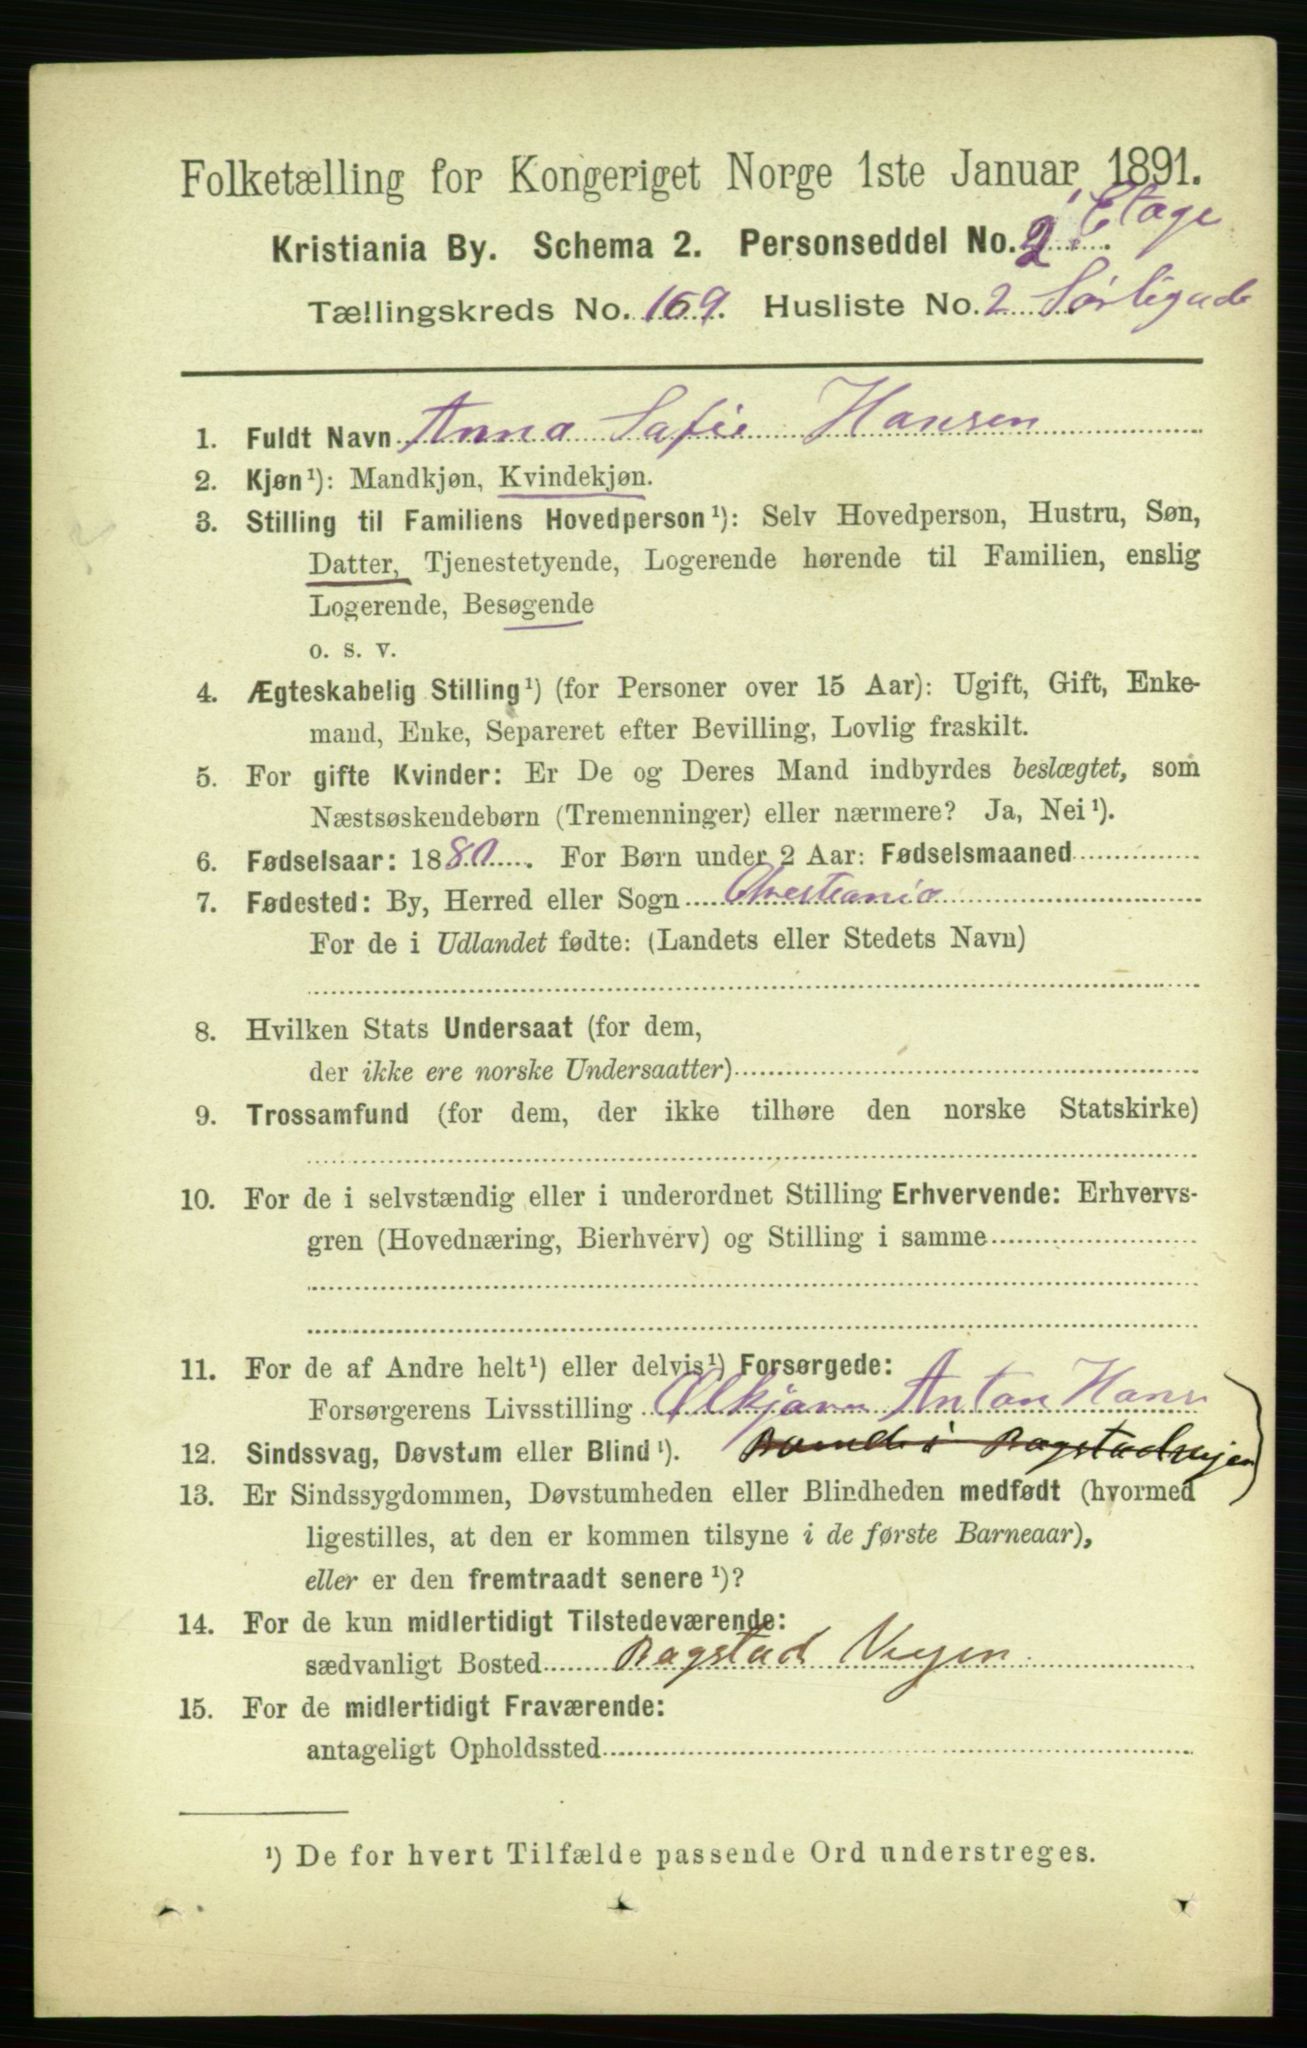 Folketælling for Kongeriget Norge 1ste Januar 1891.
Kristiania By. Schema 2. Personseddel No. 2 Etage
Tællingskreds No. 169. Husliste No. 2
1. Fuldt Navn Anna Safie Hansen
2. Kjøn¹): Mandkjøn, Kvindekjøn.
3. Stilling til Familiens Hovedperson¹): Selv Hovedperson, Hustru, Søn,
Datter, Tjenestetyende, Logerende hørende til Familien, enslig
Logerende, Besøgende
o. s. v.
4. Ægteskabelig Stilling¹) (for Personer over 15 Aar): Ugift, Gift, Enke-
mand, Enke, Separeret efter Bevilling, Lovlig fraskilt.
5. For gifte Kvinder: Er De og Deres Mand indbyrdes beslægtet, som
Næstsøskendebørn (Tremenninger) eller nærmere? Ja, Nei¹).
6. Fødselsaar: 1880. For Børn under 2 Aar: Fødselsmaaned
7. Fødested: By, Herred eller Sogn
For de i Udlandet fødte: (Landets eller Stedets Navn)
8. Hvilken Stats Undersaat (for dem,
der ikke ere norske Undersaatter)
9. Trossamfund (for dem, der ikke tilhøre den norske Statskirke)
10. For de i selvstændig eller i underordnet Stilling Erhvervende: Erhvervs-
gren (Hovednæring, Bierhverv) og Stilling i samme
11. For de af Andre helt¹) eller delvis¹) Forsørgede:
Forsørgerens Livsstilling Anton Hans
12. Sindssvag, Døvstum eller Blind¹).
13. Er Sindssygdommen, Døvstumheden eller Blindheden medfødt (hvormed
ligestilles, at den er kommen tilsyne i de første Barneaar),
eller er den fremtraadt senere¹)?
14. For de kun midlertidigt Tilstedeværende:
sædvanligt Bosted Bagstad Vejen
15. For de midlertidigt Fraværende:
antageligt Opholdssted
¹) De for hvert Tilfælde passende Ord understreges.